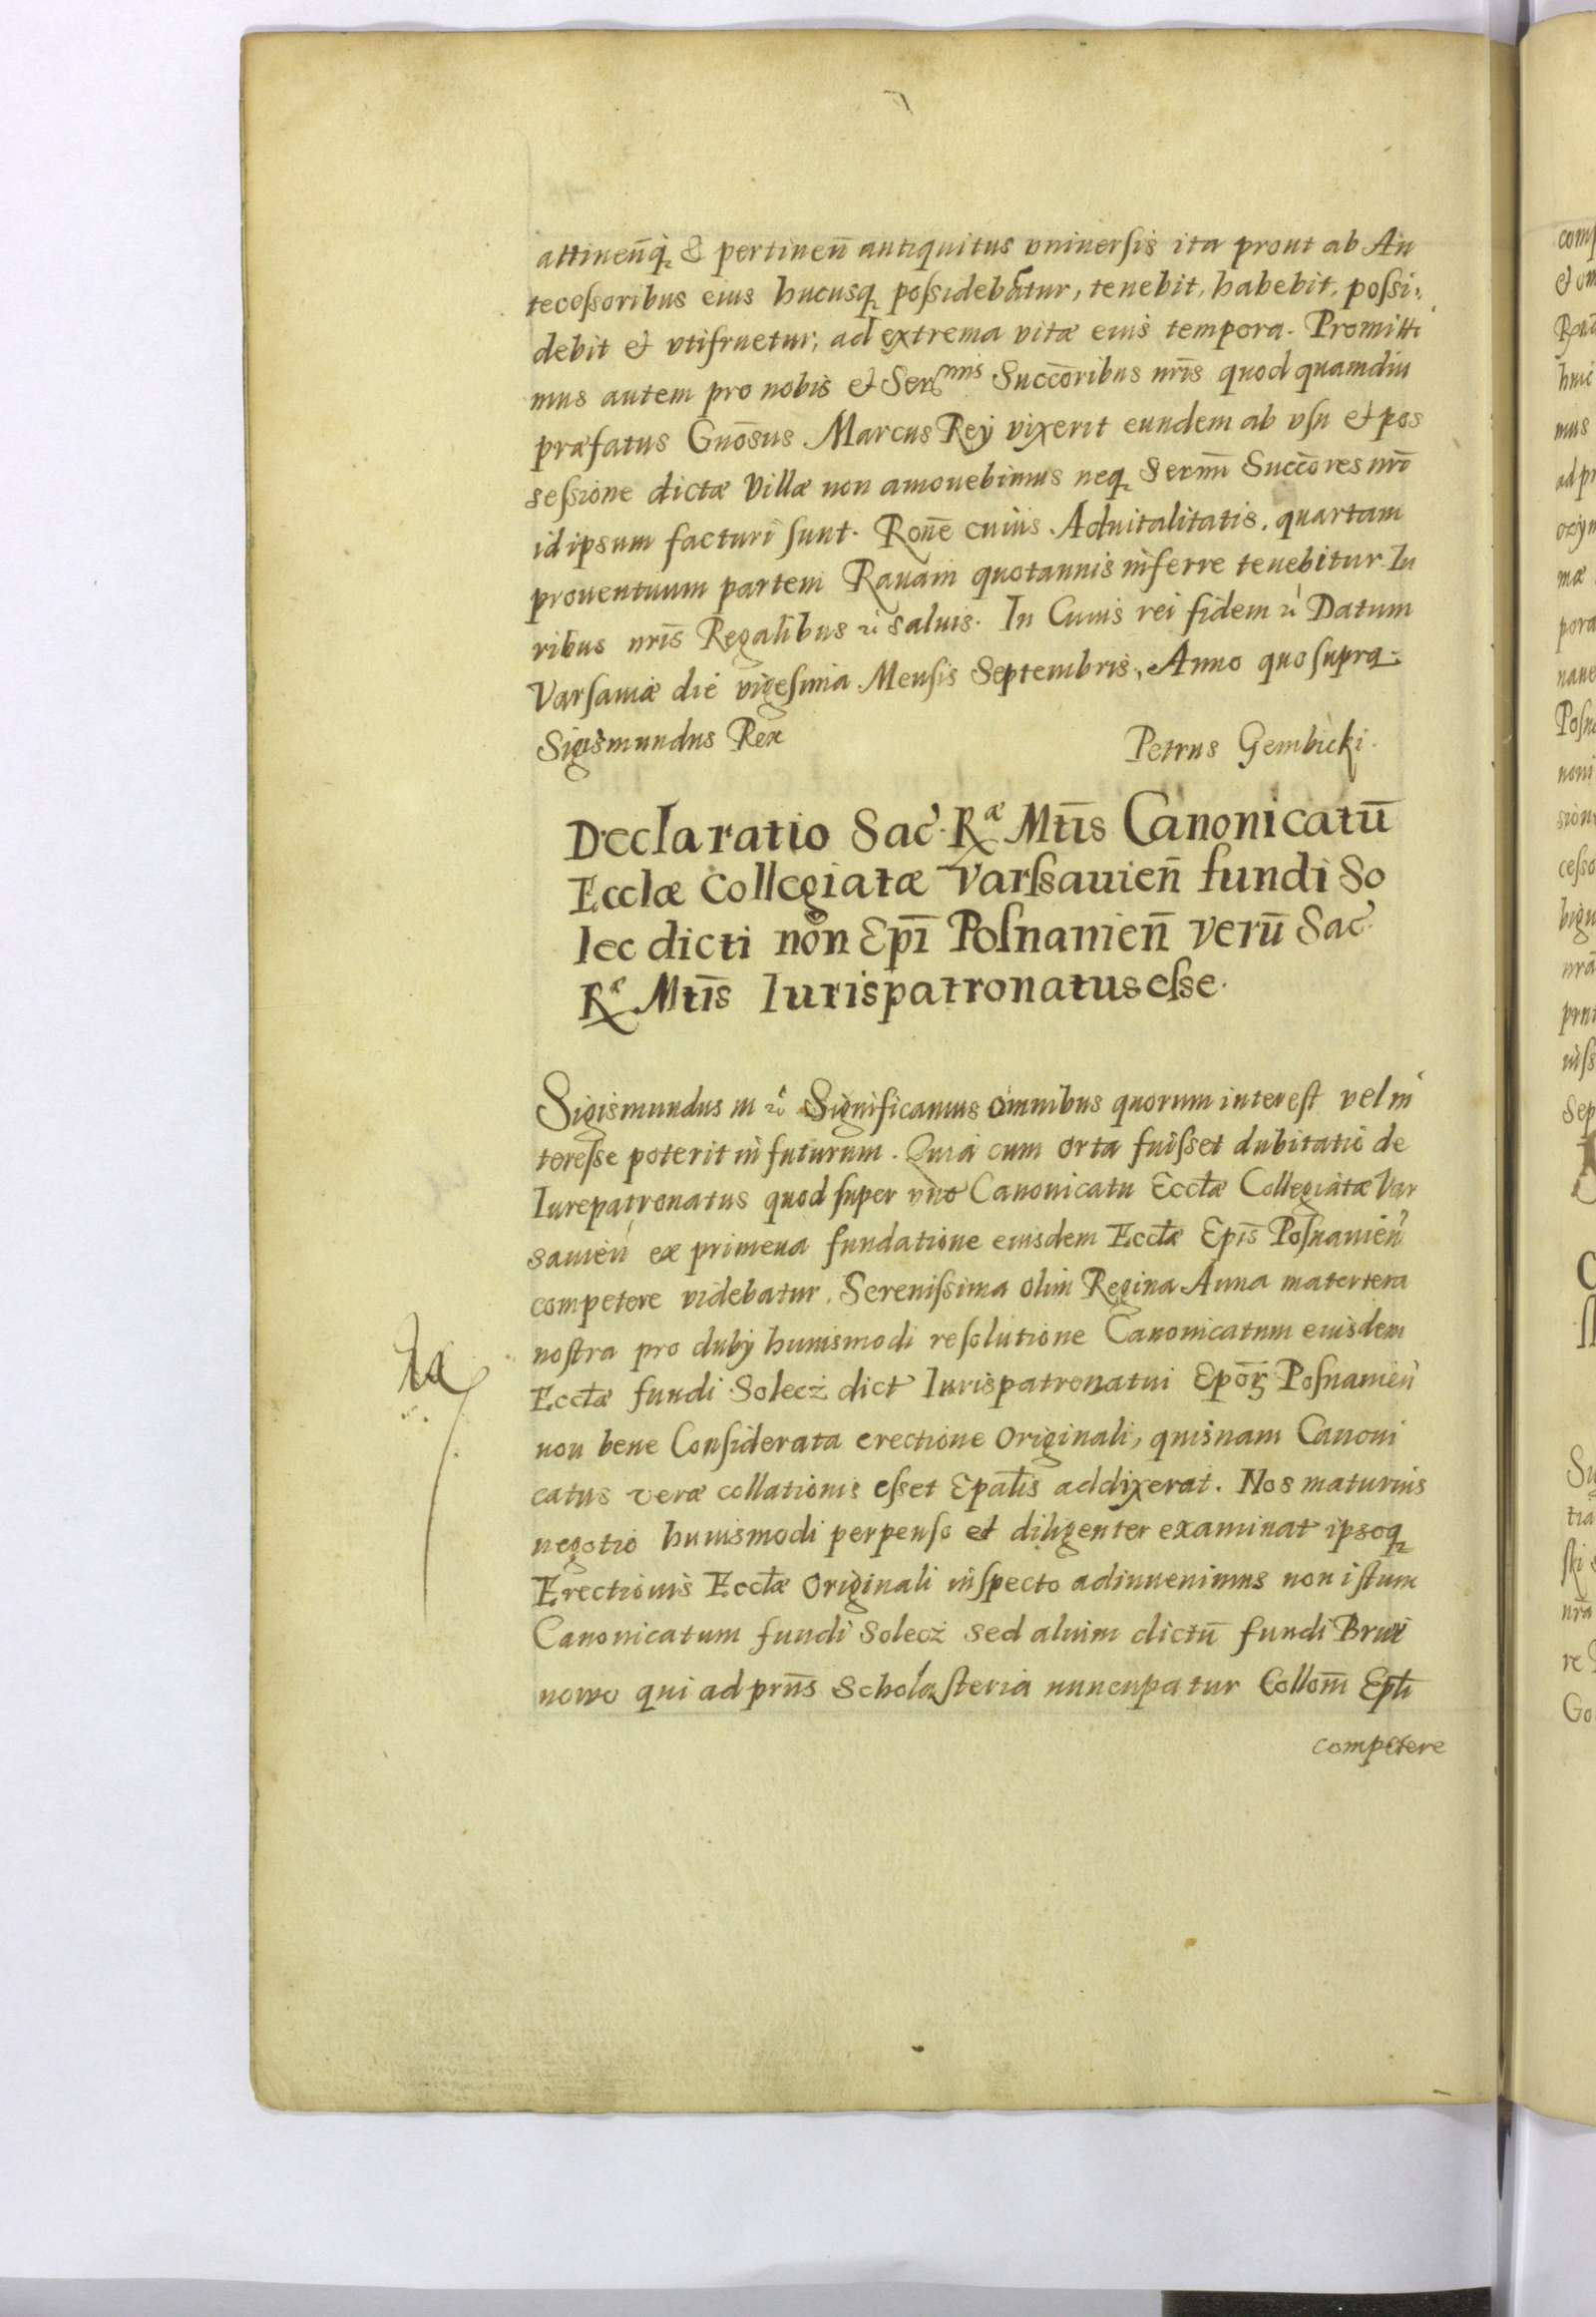 attinen̄q̨ & pertinen̄ antiquitus vniuersis ita prout ab An
tecoſsoribus eius hucusq̨ poſsidebatur, tenebit, habebit, poſsi:
debit et vtifruetur, ad extrema vitæ eius tempora. Promitti
mus autem pro nobis et Serᵐⁱˢ Succ̄oribus nr̄is quod quamdiu
præfatus Gn̄osus Marcus Reÿ vixerit eundem ab vſu et pos
seſsione dictæ Villæ non amouebimus neq̨ Serm̄i Succ̄ores nr̄i
idipsum facturi ſunt. Ron̄e cuius Aduitalitatis, quartam
prouentuum partem Rauam quotannis inferre tenebitur. Iu
ribus nr̄is Regalibus ꝛc̄ saluis. In Cuius rei fidem ꝛc̄ Datum
Varſauiæ die vigeſima Menſis Septembris, Anno quo ſupra.
Sigismundus Rex
Petrus Gembicki.
Declaratio Sac̄. Rᵃᵉ Mt̄is Canonicatū
Ecclæ Collegiatæ Varſsauien̄ fundi So
lec dicti non Ep̄i Poſnanien̄ verū Sac̄.
Rᵃᵉ Mt̄is Iurispatronatus eſse.
Sigismundus III ꝛc̄ Significamus omnibus quorum intereſt vel in
tereſse poterit in futurum. Quia cum orta fuiſset dubitatio de
Iurepatronatus quod ſuper vno Canonicatu Ecctæ Collegiatæ Var
sauien̄ ex primeua fundatione eiusdem Ecctæ Ep̄is Poſnanien̄
competere videbatur. Sereniſsima olim Regina Anna matertera
noſtra pro dubij huiusmodi reſolutione Canonicatum eiusdem
Ecctæ fundi Solecż dict Iurispatronatui Ep̄oꝝ Poſnanien̄
non bene Conſiderata erectione Originali, quisnam Canoni
catus veræ collationis eſset Epalis addixerat. Nos maturius
negotio huiusmodi perpenſo et diligenter examinat ipsoq̨
Erectionis Ecctæ Originali inſpecto adinuenimus non iſtum
Canonicatum fundi Solecż sed alium dictū fundi Brwi
nowo qui ad prn̄s Scholaſteria nuncupatur Collom̄ Epli
competere